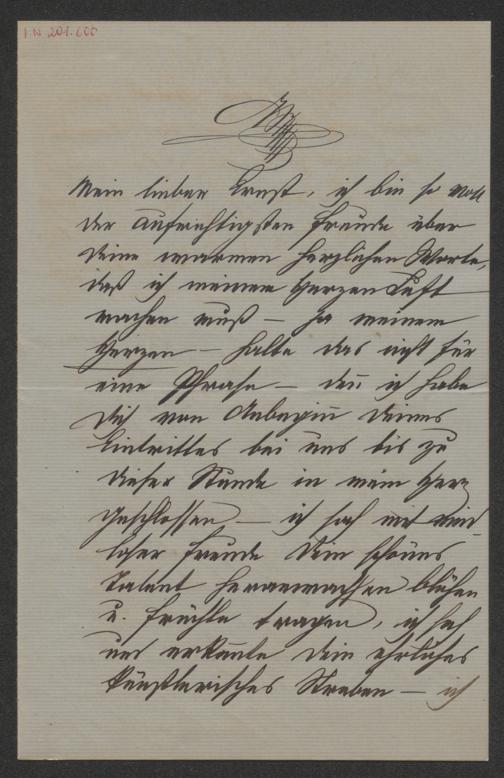 I.N. 201.600
Mein lieber Ernst, ich bin so voll
der aufrichtigsten Freude über
Deine warmen herzlichen Worte,
daß ich meinem Herzen Luft
machen muß — ja meinem
Herzen — halte das nicht für
eine Phrase — den̄ ich habe
Dich von Anbegin̄ Deines
Eintrittes bei uns bis zu
dieser Stunde in mein Herz
geschlossen — ich sah mit
loser Freude Dein schönes
Talent heranwachsen blühen
u. Früchte tragen, ich sah
und erkan̄te Dein ehrliches
künstlerisches Streben — ich